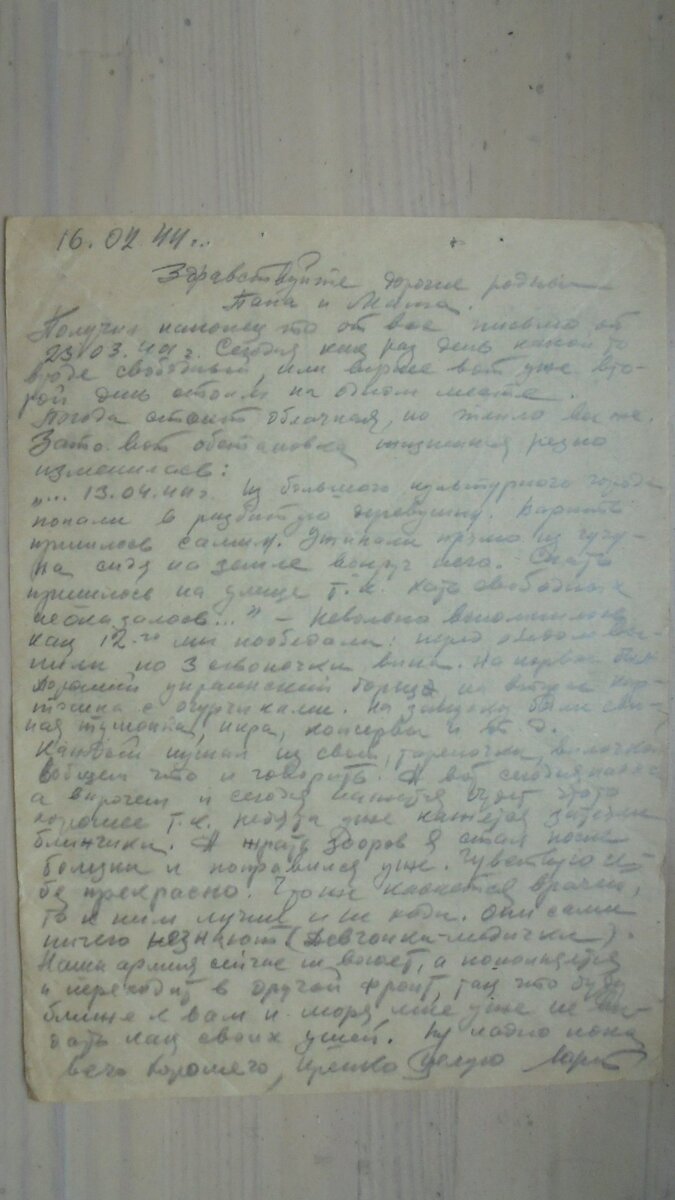 16.04.44 г.
Здравствуйте дорогие родные
Папа и Мама.
Получил наконец то от вас письмо от
23.03.44 г. Сегодня как раз день какой то
вроде свободный, или вернее вот уже вто-
рой день стоим на одном месте.
Погода стоит облачная, но тепло все же.
Зато вот обстановка жизненная резко
изменилась:
"... 13.04.44 г. Из большого культурного города
попали в разбитую деревушку. Варить
пришлось самим. Ели прямо из чугу-
на сидя на земле вокруг него. Спать
пришлось на улице т.к. хат свободных
не оказалось..." - Невольно вспомнилось
как 12-го мы пообедали: перед обедом вы-
пили по 3 стопочки вина. На первое был
хороший украинский борщ, на второе кар-
тошка с огурчиками. На закуску были сви-
ная тушонка, икра, консервы и т.д.
Каждый кушал из своей тарелочки, вилочкой
вобщем что и говорить. А вот сегодня
а впрочем и сегодня кажется будет этого
хорошее т.к. ребята уже кажется затеяли
блинчики. А жрать здоров я стал после
болезни и поправился уже. Чувствую се-
бя прекрасно. Что же касается врачей,
то к ним лучше и не ходи. Они сами
ничего незнают (Девчонки-медички).
Наша армия сейчас не воюет, а пополняется
и переходит в другой фронт, так что буду
ближе к вам и моря мне уже не ви-
дать как своих ушей. Ну ладно пока
всего хорошего, Крепко целую